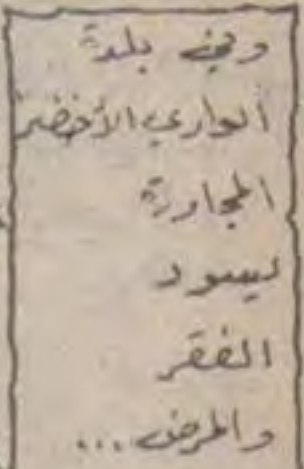 وفي بلدة
الوادي الأخضر
المجاورة
يسود
الفقر
والمرض...